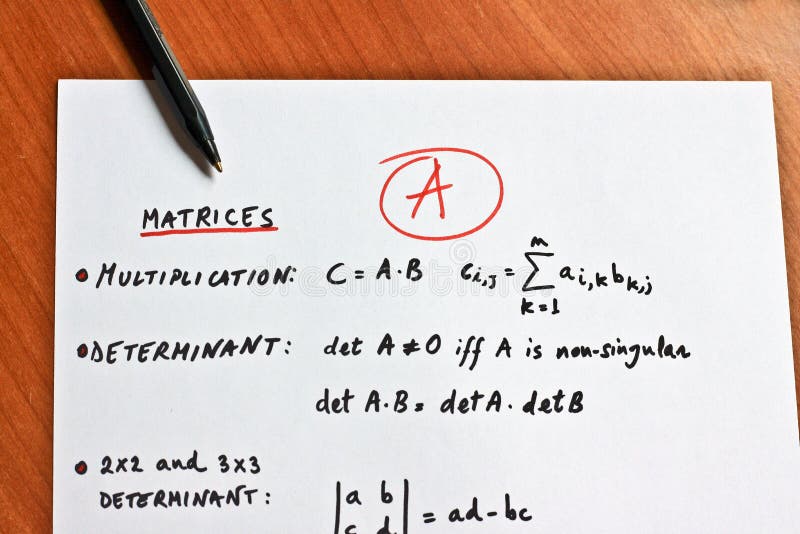 A
MATRICES
• MULTIPLICATION: C = A·B c_{i,j} = \sum_{k=1}^{m} a_{i,k} b_{k,j}
• DETERMINANT: det A ≠ 0 iff A is non-singular
det A·B = det A · det B
• 2×2 and 3×3
DETERMINANT: |a b; c d| = ad - bc